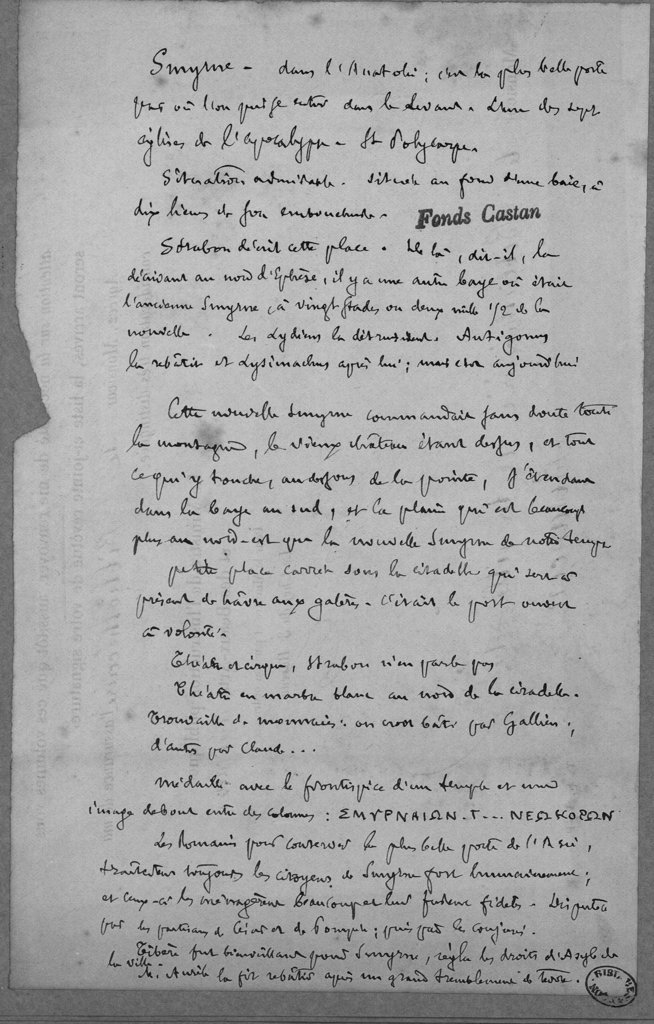 Smyrne - dans l'Anatolie ; c'est la plus belle porte
par où l'on puisse entrer dans le Levant. L'une des sept
églises de l'apocalypse - St Polycarpe.
Situation admirable. Située au fond d'une baie, à
dix lieues de son embouchure.
Fonds Castan
Strabon décrit cette place. De là, dit-il, la
décrivant au nord d'Ephèse, il y a une autre baye où était
l'ancienne Smyrne, à vingt stades ou deux mille 1/2 de la
nouvelle. Les Lydiens la détruisirent. Antigonus
la rebâtit et Lysimachus après lui ; mais c'est aujourd'hui
Cette nouvelle Smyrne commandait sans doute toute
la montagne, le vieux château étant dessus, et tout
ce qui y touche, au dessous de la pointe, s'étendant
dans la baye au sud, et la plaine qui est beaucoup
plus au nord-est que la nouvelle Smyrne de notre temps
petite place carrée sous la citadelle qui sert à
présent de hâvre aux galères. C'était le port ouvert
à volonté.
Théâtre et cirque, Strabon n'en parle pas
Théâtre en marbre blanc au nord de la citadelle.
Trouvaille de monnaies : on croit bâti par Gallien ;
d'autres par Claude...
Médaille avec le frontispice d'un temple et une
image debout entre des colonnes : ΣΜΥΡΝΑΙΩΝ. Γ... ΝΕΩΚΟΡΩΝ
Les Romains pour conserver la plus belle porte de l'Asie,
traitèrent toujours les citoyens de Smyrne fort humainement ;
et ceux-ci les ménagèrent beaucoup et leur furent fidèles. Disputée
par les partisans de César et de Pompée ; puis par les conjurés.
Tibère fut bienveillant pour Smyrne, régla les droits d'Asyle de
la ville.
M. Aurèle la fit rebâtir après un grand tremblement de terre.